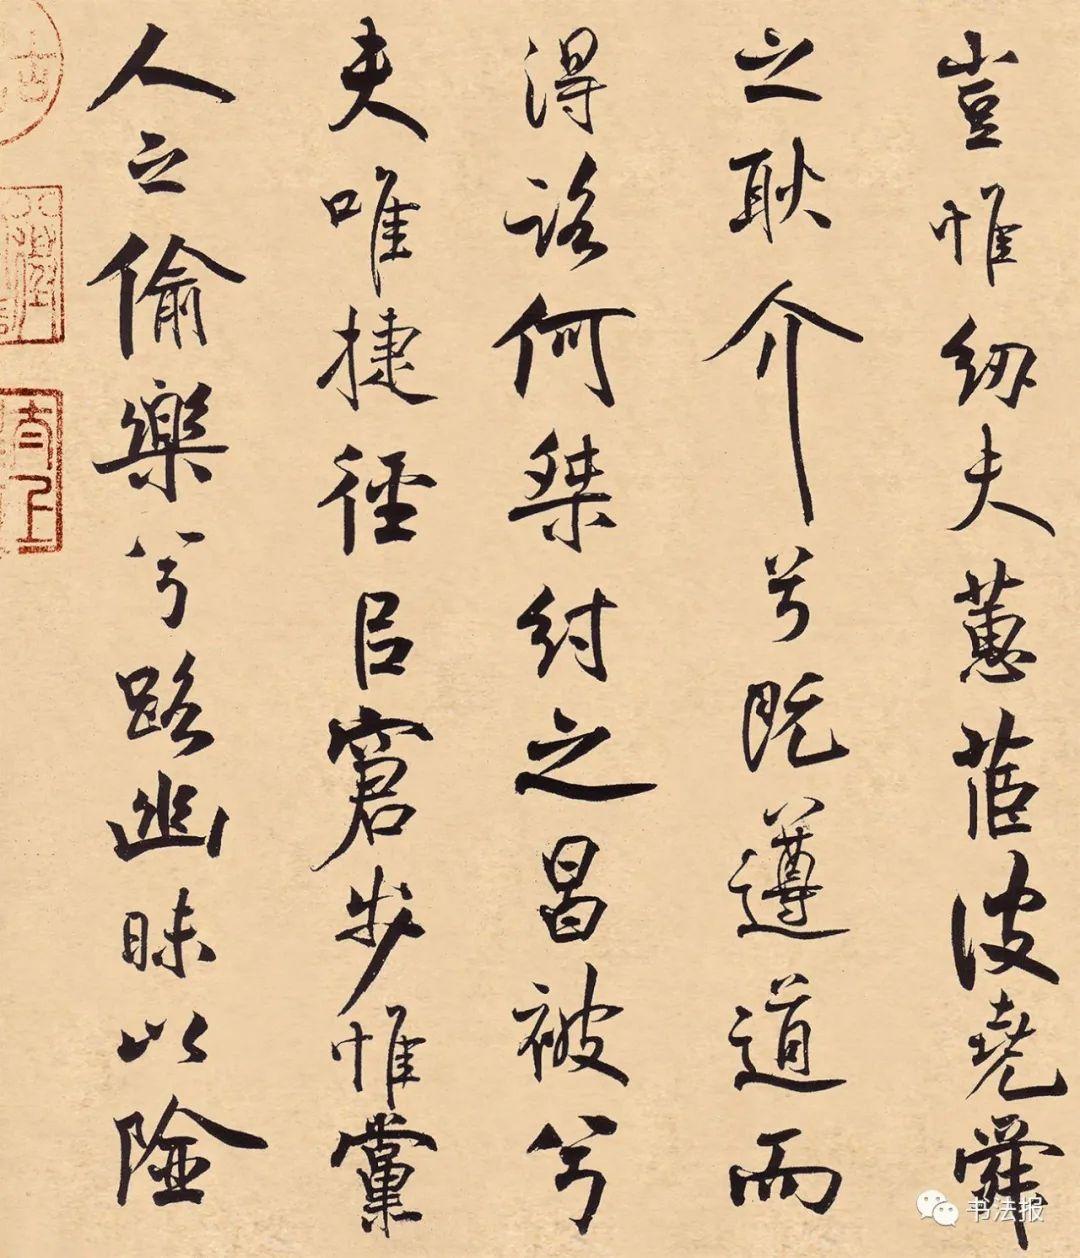 豈惟紉夫蕙茝彼堯舜
之耿介兮既遵道而
得路何桀紂之昌被兮
夫唯捷徑㠯窘步惟黨
人之偷樂兮路幽昧以險
书法报